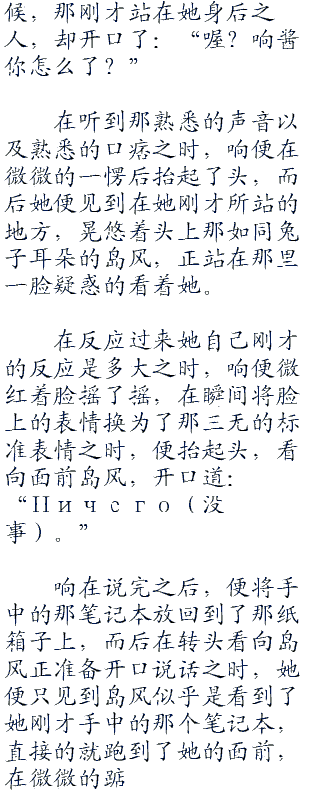 候，那刚才站在她身后之
人，却开口了：“喔？响酱
你怎么了？”
在听到那熟悉的声音以
及熟悉的口癖之时，响便在
微微的一愣后抬起了头，而
后她便见到在她刚才所站的
地方，晃悠着头上那如同兔
子耳朵的岛风，正站在那里
一脸疑惑的看着她。
在反应过来她自己刚才
的反应是多大之时，响便微
红着脸摇了摇，在瞬间将脸
上的表情换为了那三无的标
准表情之时，便抬起头，看
向面前岛风，开口道：
“Ничего（没
事）。”
响在说完之后，便将手
中的那笔记本放回到了那纸
箱子上，而后在转头看向岛
风正准备开口说话之时，她
便只见到岛风似乎是看到了
她刚才手中的那个笔记本，
直接的就跑到了她的面前，
在微微的踮